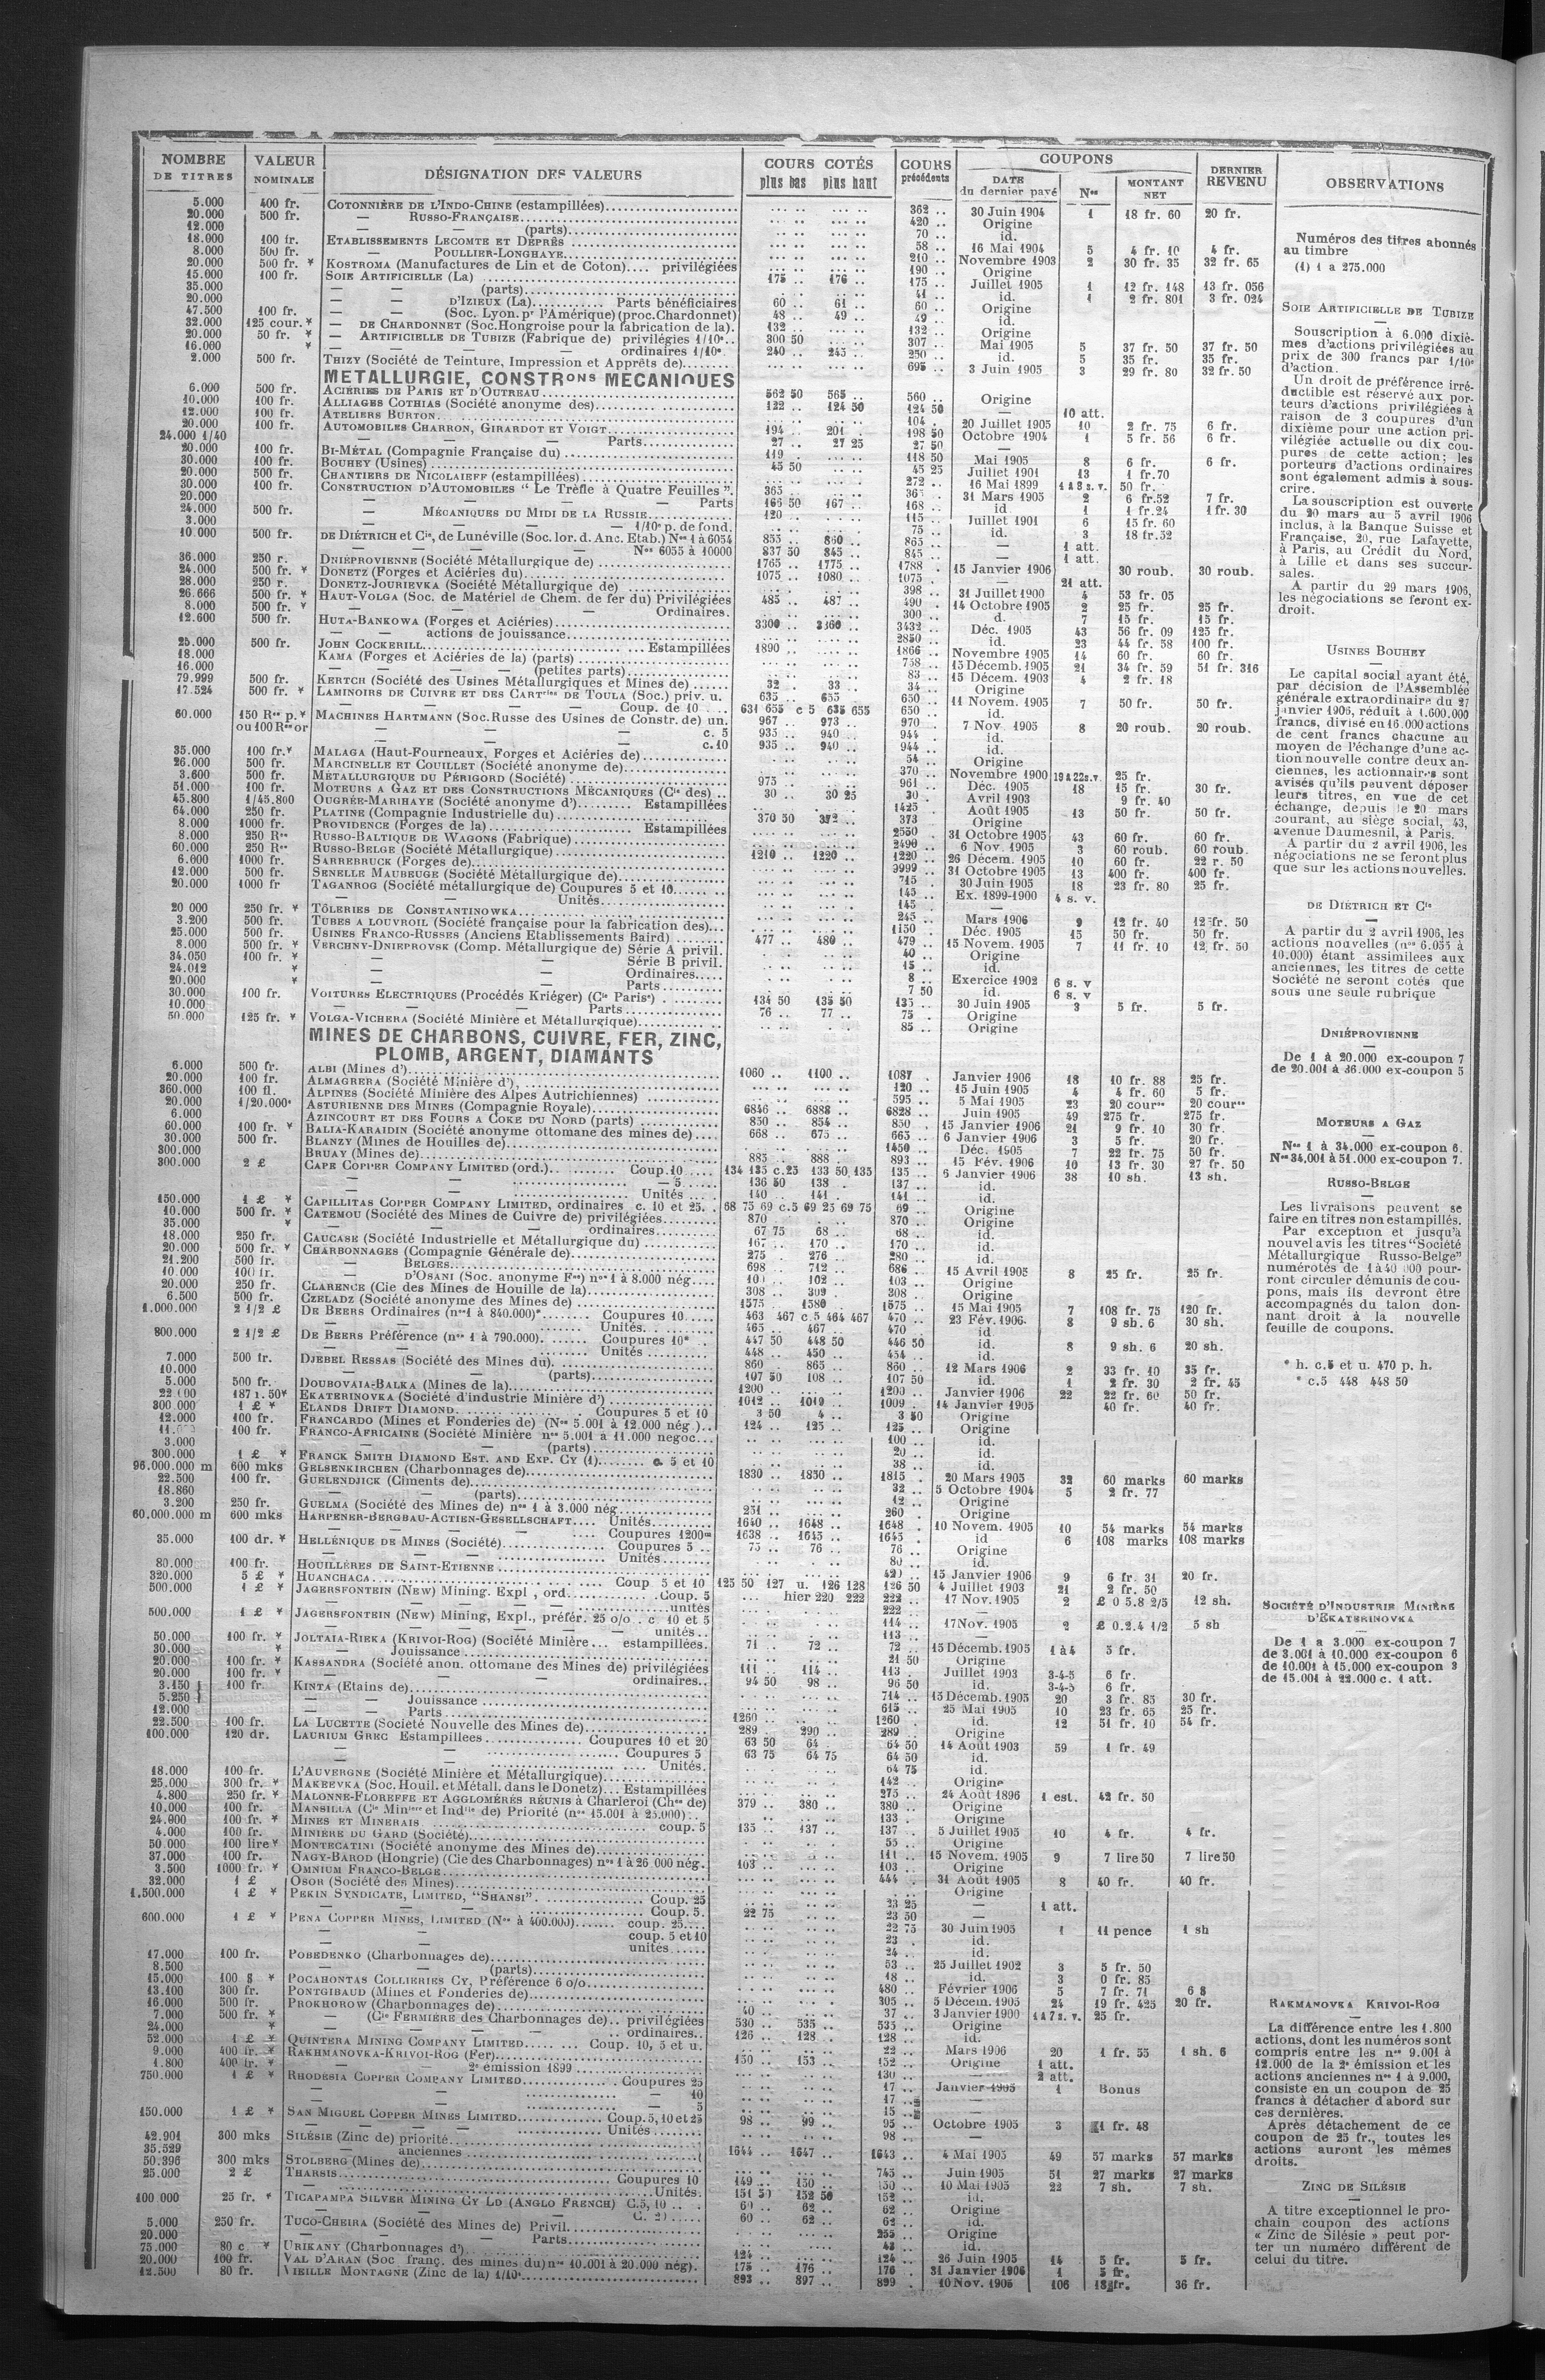 NOMBRE DE TITRES | VALEUR NOMINALE | DÉSIGNATION DES VALEURS | COURS COTÉS plus bas plus haut | COURS précédents | COUPONS DATE du dernier payé | Nos | MONTANT NET | DERNIER REVENU | OBSERVATIONS
5.000 400 fr. COTONNIÈRE DE L'INDO-CHINE (estampillées) 362 .. 30 Juin 1904 1 18 fr. 60 20 fr.
20.000 500 fr. — RUSSO-FRANÇAISE 420 .. Origine
12.000 — — (parts) 70 .. id.
18.000 100 fr. ETABLISSEMENTS LECOMTE ET DEPRÈS 58 .. 16 Mai 1904 5 4 fr. 10 4 fr.
8.000 500 fr. — POULLIER-LONGHAYE 210 .. Novembre 1903 2 30 fr. 35 32 fr. 65
20.000 500 fr. * KOSTROMA (Manufactures de Lin et de Coton).... privilégiées 190 .. Origine
15.000 100 fr. SOIE ARTIFICIELLE (La) 175 .. 176 .. 175 .. Juillet 1905 1 12 fr. 148 13 fr. 056
35.000 — — (parts) 41 .. id. 1 2 fr. 801 3 fr. 024
20.000 — — D'IZIEUX (La) Parts bénéficiaires 60 .. 61 .. 60 .. Origine
47.500 100 fr. — — (Soc. Lyon. pr l'Amérique) (proc. Chardonnet) 48 .. 49 .. 49 .. id.
32.000 125 cour. * — DE CHARDONNET (Soc. Hongroise pour la fabrication de la). 132 .. 132 .. Origine
20.000 50 fr. * — ARTIFICIELLE DE TUBIZE (Fabrique de) privilégies 1/10e.. 300 50 307 Mai 1905 5 37 fr. 50 37 fr. 50
16.000 * — — — ordinaires 1/10e. 240 .. 245 .. 250 .. id. 5 35 fr. 35 fr.
2.000 500 fr. THIZY (Société de Teinture, Impression et Apprêts de) 695 .. 3 Juin 1905 3 29 fr. 80 32 fr. 50
METALLURGIE, CONSTRons MECANIQUES
6.000 500 fr. ACIÉRIES DE PARIS ET D'OUTREAU 562 50 565 .. 560 .. Origine
10.000 100 fr. ALLIAGES COTHIAS (Société anonyme des) 122 .. 124 50 124 50 — 10 att.
12.000 100 fr. ATELIERS BURTON 104 . 20 Juillet 1905 10 2 fr. 75 6 fr.
20.000 100 fr. AUTOMOBILES CHARRON, GIRARDOT ET VOIGT 194 .. 201 . 198 50 Octobre 1904 1 5 fr. 56 6 fr.
24.000 1/40 — — — Parts 27 .. 27 25 27 50 —
20.000 100 fr. BI-MÉTAL (Compagnie Française du) 119 .. 118 50 Mai 1905 8 6 fr. 6 fr.
30.000 100 fr. BOUHEY (Usines) 45 50 45 25 Juillet 1901 13 1 fr.70
20.000 500 fr. CHANTIERS DE NICOLAIEFF (estampillées) 272 .. 16 Mai 1899 1 à 8 s. v. 50 fr.
30.000 100 fr. CONSTRUCTION D'AUTOMOBILES “ Le Trèfle à Quatre Feuilles ”. 365 .. 31 Mars 1905 2 6 fr.52 7 fr.
20.000 — — — Parts 166 50 167 .. 168 .. id 1 1 fr.24 1 fr. 30
24.000 500 fr. — MÉCANIQUES DU MIDI DE LA RUSSIE 120 .. 115 .. Juillet 1901 6 15 fr. 60
3.000 — — — — 1/10e p. de fond. 75 .. id. 3 18 fr.52
10.000 500 fr. DE DIÉTRICH et Cie, de Lunéville (Soc. lor. d. Anc. Etab.) Nos 1 à 6054 855 .. 860 .. 865 .. — 1 att.
— — — Nos 6055 à 10000 837 50 845 .. 845 .. — 1 att.
36.000 250 r. DNIÉPROVIENNE (Société Métallurgique de) 1765 .. 1775 .. 1788 . 15 Janvier 1906 30 roub. 30 roub.
24.000 500 fr. * DONETZ (Forges et Aciéries du) 1075 .. 1080 .. 1075 . — 21 att.
28.000 250 r. DONETZ-JOURIEVKA (Société Métallurgique de) 398 .. 31 Juillet 1900 4 53 fr. 05
26.666 500 fr. * HAUT-VOLGA (Soc. de Matériel de Chem. de fer du) Privilégiées 485 .. 487 .. 490 . 14 Octobre 1905 2 25 fr. 25 fr.
8.000 500 fr. * — — — Ordinaires. 300 .. d. 7 15 fr. 15 fr.
12.600 500 fr. HUTA-BANKOWA (Forges et Aciéries) 3300 .. 3360 .. 3432 .. Déc. 1905 43 56 fr. 09 125 fr.
— — actions de jouissance 2850 .. id. 23 44 fr. 58 100 fr.
25.000 500 fr. JOHN COCKERILL Estampillées 1890 .. 1866 .. Novembre 1905 14 60 fr. 60 fr.
18.000 KAMA (Forges et Aciéries de la) (parts) 758 .. 15 Décemb. 1905 21 34 fr. 59 51 fr. 316
16.000 — — (petites parts) 83 .. 15 Décem. 1903 4 2 fr. 18
79.999 500 fr. KERTCH (Société des Usines Métallurgiques et Mines de) 32 . 33 .. 34 .. Origine
17.524 500 fr. * LAMINOIRS DE CUIVRE ET DES CARTries DE TOULA (Soc.) priv. u. 635 .. 655 .. 650 .. 11 Novem. 1905 7 50 fr. 50 fr.
— — — Coup. de 10 631 655 c 5 635 655 650 .. id.
60.000 150 Res p.* ou 100 Res or MACHINES HARTMANN (Soc. Russe des Usines de Constr. de) un. 967 .. 973 .. 970 .. 7 Nov. 1905 8 20 roub. 20 roub.
— — — c. 5 935 .. 940 .. 944 .. id.
— — — c. 10 935 .. 940 .. 944 .. id.
35.000 100 fr.* MALAGA (Haut-Fourneaux, Forges et Aciéries de) 54 .. Origine
26.000 500 fr. MARCINELLE ET COUILLET (Société anonyme de) 370 .. Novembre 1900 19 à 22 s.v. 25 fr.
3.600 500 fr. MÉTALLURGIQUE DU PÉRIGORD (Société) 975 .. 961 . Déc. 1905 18 15 fr. 30 fr.
51.000 100 fr. MOTEURS A GAZ ET DES CONSTRUCTIONS MÉCANIQUES (Cie des) .. 30 .. 30 25 30 . Avril 1903 9 fr. 40
45.800 1/45.800 OUGRÉE-MARIHAYE (Société anonyme d') Estampillées 1425 Août 1905 13 50 fr. 50 fr.
64.000 250 fr. PLATINE (Compagnie Industrielle du) 370 50 372 .. 373 Origine
8.000 1000 fr. PROVIDENCE (Forges de la) Estampillées 2550 . 31 Octobre 1905 43 60 fr. 60 fr.
8.000 250 Res RUSSO-BALTIQUE DE WAGONS (Fabrique) 2490 .. 6 Nov. 1905 3 60 roub. 60 roub.
60.000 250 Res RUSSO-BELGE (Société Métallurgique) 1210 .. 1220 .. 1220 .. 26 Décem. 1905 10 60 fr. 22 r. 50
6.000 1000 fr. SARREBRUCK (Forges de) 9999 .. 31 Octobre 1905 13 400 fr. 400 fr.
12.000 500 fr. SENELLE MAUBEUGE (Société Métallurgique de) 715 .. 30 Juin 1905 18 23 fr. 80 25 fr.
20.000 1000 fr TAGANROG (Société métallurgique de) Coupures 5 et 10 145 .. Ex. 1899-1900 4 s. v.
— — Unités 145 . —
20 000 250 fr. * TÔLERIES DE CONSTANTINOWKA 245 .. Mars 1906 9 12 fr. 40 12 fr. 50
3.200 500 fr. TUBES A LOUVROIL (Société française pour la fabrication des) 1150 . Déc. 1905 15 50 fr. 50 fr.
25.000 500 fr. USINES FRANCO-RUSSES (Anciens Etablissements Baird) 477 .. 480 .. 479 .. 15 Novem. 1905 7 11 fr. 10 12 fr. 50
8.000 500 fr. * VERCHNY-DNIEPROVSK (Comp. Métallurgique de) Série A privil. 40 .. Origine
34.050 100 fr. * — — Série B privil. 15 .. id.
24.012 * — — Ordinaires 8 .. Exercice 1902 6 s. v
20.000 * — — Parts 7 50 id. 6 s. v
30.000 100 fr. VOITURES ELECTRIQUES (Procédés Kriéger) (Cie Parise) 134 50 135 50 135 .. 30 Juin 1905 3 5 fr. 5 fr.
10.000 — — Parts 76 .. 77 .. 75 .. Origine
50.000 125 fr. * VOLGA-VICHERA (Société Minière et Métallurgique) 85 .. Origine
MINES DE CHARBONS, CUIVRE, FER, ZINC,
PLOMB, ARGENT, DIAMANTS
6.000 500 fr. ALBI (Mines d') 1060 .. 1100 .. 1087 . Janvier 1906 18 10 fr. 88 25 fr.
20.000 100 fr. ALMAGRERA (Société Minière d') 120 .. 15 Juin 1905 4 4 fr. 60 5 fr.
360.000 100 fl. ALPINES (Société Minière des Alpes Autrichiennes) 595 .. 5 Mai 1905 23 20 cources 20 cources
20.000 1/20.000e ASTURIENNE DES MINES (Compagnie Royale) 6846 .. 6888 .. 6828 .. Juin 1905 49 275 fr. 275 fr.
6.000 AZINCOURT ET DES FOURS A COKE DU NORD (parts) 850 .. 854 .. 850 . 15 Janvier 1906 21 9 fr. 10 30 fr.
60.000 100 fr. * BALIA-KARAIDIN (Société anonyme ottomane des mines de) 668 .. 675 .. 665 .. 6 Janvier 1906 3 5 fr. 20 fr.
30.000 500 fr. BLANZY (Mines de Houilles de) 1450 .. Déc. 1905 7 22 fr. 75 50 fr.
300.000 BRUAY (Mines de) 885 .. 888 .. 893 .. 15 Fév. 1906 10 13 fr. 30 27 fr. 50
300.000 2 £ CAPE COPPER COMPANY LIMITED (ord.) Coup.10 134 135 c.25 133 50, 135 135 . 6 Janvier 1906 38 10 sh. 13 sh.
— — — 5 136 50 138 . 137 .. id.
— — Unités 140 . 141 . 141 .. id.
150.000 1 £ * CAPILLITAS COPPER COMPANY LIMITED, ordinaires c. 10 et 25. 68 75 69 c.5 69 25 69 75 69 .. Origine
10.000 500 fr. * CATEMOU (Société des Mines de Cuivre de) privilégiées 870 870 . Origine
35.000 * — — ordinaires 67 75 68 .. 68 .. id.
18.000 250 fr. CAUCASE (Société Industrielle et Métallurgique du) 167 .. 170 .. 170 .. id.
20.000 500 fr. * CHARBONNAGES (Compagnie Générale de) 275 276 .. 280 .. id.
21.200 500 fr. — BELGES 698 .. 712 .. 686 .. 15 Avril 1905 8 25 fr. 25 fr.
10.000 100 fr. — D'OSANI (Soc. anonyme Fse) nos 1 à 8.000 nég 101 .. 102 .. 103 .. Origine
20.000 250 fr. CLARENCE (Cie des Mines de Houille de la) 308 .. 309 .. 308 .. Origine
6.500 500 fr. CZELADZ (Société anonyme des Mines de) 1575 . 1580 . 1575 .. 15 Mai 1905 7 108 fr. 75 120 fr.
1.000.000 2 1/2 £ DE BEERS Ordinaires (nos 1 à 840.000)* Coupures 10 463 467 c.5 464 467 470 .. 23 Fév. 1906 8 9 sh. 6 30 sh.
— — Unités 465 .. 467 .. 470 . id.
800.000 2 1/2 £ DE BEERS Préférence (nos 1 à 790.000). Coupures 10* 447 50 448 50 446 50 id. 8 9 sh. 6 20 sh.
— — Unités 448 .. 450 .. 454 .. id.
7.000 500 fr. DJEBEL RESSAS (Société des Mines du) 860 .. 865 .. 860 .. 12 Mars 1906 2 33 fr. 10 35 fr.
10.000 — — (parts) 107 50 108 .. 107 50 id. 1 2 fr. 30 2 fr. 45
5.000 500 fr. DOUBOVAIA-BALKA (Mines de la) 1200 .. 1200 .. Janvier 1906 22 22 fr. 60 50 fr.
22.000 187 r. 50* EKATERINOVKA (Société d'industrie Minière d') 1012 .. 1019 .. 1009 . 14 Janvier 1905 40 fr. 40 fr.
300 000 1 £ * ELANDS DRIFT DIAMOND Coupures 5 et 10 3 50 4 .. 3 50 Origine
12.000 100 fr. FRANCARDO (Mines et Fonderies de) (Nos 5.001 à 12.000 nég.) 124 .. 125 .. 125 .. Origine
100 fr. FRANCO-AFRICAINE (Société Minière nos 5.001 à 11.000 negoc 100 .. id.
3.000 — — (parts) 20 .. id.
300.000 1 £ * FRANCK SMITH DIAMOND EST. AND EXP. CY (1) c. 5 et 10 38 .. id.
96.000.000 m 600 mks GELSENKIRCHEN (Charbonnages de) 1830 .. 1850 .. 1815 . 20 Mars 1905 32 60 marks 60 marks
22.500 100 fr. GUELENDJICK (Ciments de) 32 .. 5 Octobre 1904 5 2 fr. 77
18.860 — — (parts) 12 .. Origine
3.200 250 fr. GUELMA (Société des Mines de) nos 1 à 3.000 nég 251 .. 260 . Origine
60.000.000 m 600 mks HARPENER-BERGBAU-ACTIEN-GESELLSCHAFT Unités 1640 .. 1648 .. 1648 . 10 Novem. 1905 10 54 marks 54 marks
— — Coupures 1200m 1638 .. 1645 .. 1645 . id 6 108 marks 108 marks
35.000 100 dr. * HELLÉNIQUE DE MINES (Société) Coupures 5 .. 75 .. 76 .. 76 .. Origine
— — Unités 80 .. id.
80.000 100 fr. HOUILLÈRES DE SAINT-ETIENNE 420 .. 15 Janvier 1906 9 6 fr. 31 20 fr.
320.000 5 £ * HUANCHACA Coup 5 et 10 125 50 127 u. 126 128 126 50 4 Juillet 1903 21 2 fr. 50
500.000 1 £ * JAGERSFONTEIN (NEW) Mining. Expl , ord. Coup. 5 hier 220 222 222 .. 17 Nov. 1905 2 £ 0 5.8 2/5 12 sh.
— — unités 222 .. —
500.000 1 £ * JAGERSFONTEIN (NEW) Mining, Expl., préfér. 25 o/o . c 10 et 5 114 .. 17 Nov. 1905 2 £ 0.2.4 1/2 5 sh
— — unités 113 .. —
50.000 100 fr. * JOLTAIA-RIEKA (KRIVOI-ROG) (Société Minière estampillées. 71 .. 72 .. 72 .. 15 Décemb. 1905 1 à 4 5 fr.
30.000 * — — Jouissance 21 50 Origine
20.000 100 fr. * KASSANDRA (Société anon. ottomane des Mines de) privilégiées 111 .. 114 .. 113 . Juillet 1903 3-4-5 6 fr.
20.000 100 fr. * — — ordinaires.. 94 50 98 .. 96 50 id. 3-4-5 6 fr.
3.150 100 fr. KINTA (Etains de) 714 .. 15 Décemb. 1905 20 3 fr. 85 30 fr.
5.250 — — Jouissance 615 .. 25 Mai 1905 10 23 fr. 65 25 fr.
12.000 — — Parts 1260 1260 . id. 12 51 fr. 10 54 fr.
22.500 100 fr. LA LUCETTE (Société Nouvelle des Mines de) 289 .. 290 .. 289 .. Origine
100.000 120 dr. LAURIUM GREC Estampillees Coupures 10 et 20 63 50 64 . 64 50 14 Août 1903 59 1 fr. 49
— — Coupures 5 63 75 64 75 64 50 id.
— — Unités. 64 75 id.
18.000 100 fr. L'AUVERGNE (Société Minière et Métallurgique) 142 .. Origine
25.000 300 fr. * MAKEEVKA (Soc. Houil. et Métall. dans le Donetz) Estampillées 275 .. 24 Août 1896 1 est. 42 fr. 50
4.800 250 fr. * MALONNE-FLOREFFE ET AGGLOMÉRÉS RÉUNIS à Charleroi (Chge de) 379 .. 380 .. 380 .. Origine
10.000 100 fr. MANSILLA (Cie Minière et Indlle de) Priorité (nos 15.001 à 25.000) 133 . Origine
24.000 100 fr. * MINES ET MINERAIS coup. 5 135 .. 137 .. 137 . 5 Juillet 1905 10 4 fr. 4 fr.
4.000 100 fr. MINIÈRE DU GARD (Société) 55 .. Origine
50.000 100 lire* MONTECATINI (Société anonyme des Mines de) 111 .. 15 Novem. 1905 9 7 lire 50 7 lire 50
37.000 100 fr. NAGY-BAROD (Hongrie) (Cie des Charbonnages) nos 1 à 26 000 nég. 103 .. 103 .. Origine
3.500 1000 fr. * OMNIUM FRANCO-BELGE 444 .. 31 Août 1905 8 40 fr. 40 fr.
32.000 1 £ OSOR (Société des Mines) Origine
1.500.000 1 £ * PEKIN SYNDICATE, LIMITED, “SHANSI”. Coup. 25 23 25 — 1 att.
— — Coup. 5. 22 75 23 50 —
600.000 1 £ * PENA COPPER MINES, LIMITED (Nos à 400.000) coup. 25 22 75 30 Juin 1905 1 11 pence 1 sh
— — coup. 5 et 10 23 . id.
— — unités 24 .. id.
17.000 100 fr. POBEDENKO (Charbonnages de) 53 .. 25 Juillet 1902 3 5 fr. 50
8.500 — — (parts) 18 .. id. 3 0 fr. 85
15.000 100 $ * POCAHONTAS COLLIERIES CY, Préférence 6 o/o 480 Février 1906 5 7 fr. 71 6 $
13.100 300 fr. PONTGIBAUD (Mines et Fonderies de) 305 .. 5 Décem. 1905 24 19 fr. 425 20 fr.
16.000 500 fr. PROKHOROW (Charbonnages de) 40 .. 37 .. 3 Janvier 1900 4 à 7 s. v. 25 fr.
7.000 500 fr. * — (Cie FERMIÈRE des Charbonnages de) privilégiées 530 .. 535 .. 535 .. Origine
24.000 * — — ordinaires.. 126 .. 128 .. 128 .. id.
52.000 1 £ * QUINTERA MINING COMPANY LIMITED Coup. 10, 5 et u. 22 .. Mars 1906 20 1 fr. 55 1 sh. 6
9.000 400 fr. * RAKHMANOVKA-KRIVOI-ROG (Fer) 150 .. 153 .. 152 .. Origine 1 att.
1.800 400 fr. * — — 2e émission 1899 130 .. — 2 att.
750.000 1 £ * RHODESIA COPPER COMPANY LIMITED Coupures 25 17 .. Janvier 1905 1 Bonus
— — — 10 17 .. —
— — — 5 15 .. —
150.000 1 £ * SAN MIGUEL COPPER MINES LIMITED Coup. 5, 10 et 25 98 .. 99 .. 95 .. Octobre 1905 3 1 fr. 48
— — Unités 98 .. —
42.901 300 mks SILÉSIE (Zinc de) priorité 1644 .. 1647 .. 1643 .. 4 Mai 1905 49 57 marks 57 marks
35.529 — — anciennes
50.396 300 mks STOLBERG (Mines de) 745 .. Juin 1905 51 27 marks 27 marks
25.000 2 £ THARSIS Coupures 10 149 .. 150 .. 150 .. 10 Mai 1905 22 7 sh. 7 sh.
— Unités. 151 50 152 50 152 .. id.
100 000 25 fr. * TICAPAMPA SILVER MINING CY LD (ANGLO FRENCH) C.5, 10 60 .. 62 .. 62 .. Origine
— — 60 .. 62 .. 62 .. id.
5.000 250 fr. TUCO-CHEIRA (Société des Mines de) Privil 255 .. Origine
20.000 — — Parts 43 .. id.
75.000 80 c * URIKANY (Charbonnages d') 124 .. 124 .. 26 Juin 1905 14 5 fr. 5 fr.
20.000 100 fr. VAL D'ARAN (Soc franç. des mines du) nos 10.001 à 20.000 nég). 175 .. 176 .. 176 . 31 Janvier 1906 1 5 fr.
12.500 80 fr. VIEILLE MONTAGNE (Zinc de la) 1/10e 893 .. 897 .. 899 . 10 Nov. 1905 106 18 fr. 36 fr.
Numéros des titres abonnés
au timbre
(1) 1 a 275.000
SOIE ARTIFICIELLE DE TUBIZE
Souscription à 6.000 dixiè-
mes d'actions privilégiées au
prix de 300 francs par 1/10e
d'action.
Un droit de préférence irré-
ductible est réservé aux por-
teurs d'actions privilégiées à
raison de 3 coupures d'un
dixième pour une action pri-
vilégiée actuelle ou dix cou-
pures de cette action; les
porteurs d'actions ordinaires
sont également admis à sous-
crire.
La souscription est ouverte
du 20 mars au 5 avril 1906
inclus, à la Banque Suisse et
Française, 20, rue Lafayette,
à Paris, au Crédit du Nord,
à Lille et dans ses succur-
sales.
A partir du 29 mars 1906,
les négociations se feront ex-
droit.
USINES BOUHEY
Le capital social ayant été,
par décision de l'Assemblée
générale extraordinaire du 27
janvier 1906, réduit à 1.600.000
francs, divisé en 16.000 actions
de cent francs chacune au
moyen de l'échange d'une ac-
tion nouvelle contre deux an-
ciennes, les actionnaires sont
avisés qu'ils peuvent déposer
leurs titres, en vue de cet
échange, depuis le 20 mars
courant, au siège social, 43,
avenue Daumesnil, à Paris.
A partir du 2 avril 1906, les
négociations ne se feront plus
que sur les actions nouvelles.
DE DIÉTRICH ET Cie
A partir du 2 avril 1906, les
actions nouvelles (nos 6.055 à
10.000) étant assimilees aux
anciennes, les titres de cette
Société ne seront cotés que
sous une seule rubrique
DNIÉPROVIENNE
De 1 à 20.000 ex-coupon 7
de 20.001 à 36.000 ex-coupon 5
MOTEURS A GAZ
Nos 1 à 34.000 ex-coupon 6.
Nos 34.001 à 51.000 ex-coupon 7.
RUSSO-BELGE
Les livraisons peuvent se
faire en titres non estampillés.
Par exception et jusqu'à
nouvel avis les titres “Société
Métallurgique Russo-Belge”
numérotés de 1 à 40 000 pour-
ront circuler démunis de cou-
pons, mais ils devront être
accompagnés du talon don-
nant droit à la nouvelle
feuille de coupons.
* h. c.5 et u. 470 p. h.
* c.5 448 448 50
SOCIÉTÉ D'INDUSTRIE MINIÈRE
D'EKATERINOVKA
De 1 a 3.000 ex-coupon 7
de 3.001 à 10.000 ex-coupon 6
de 10.001 à 15.000 ex-coupon 3
de 15.001 à 22.000 c. 1 att.
RAKMANOVKA KRIVOI-ROG
La différence entre les 1.800
actions, dont les numéros sont
compris entre les nos 9.001 à
12.000 de la 2e émission et les
actions anciennes nos 1 à 9.000,
consiste en un coupon de 25
francs à détacher d'abord sur
ces dernières.
Après détachement de ce
coupon de 25 fr., toutes les
actions auront les mêmes
droits.
ZINC DE SILÉSIE
A titre exceptionnel le pro-
chain coupon des actions
« Zinc de Silésie » peut por-
ter un numéro différent de
celui du titre.